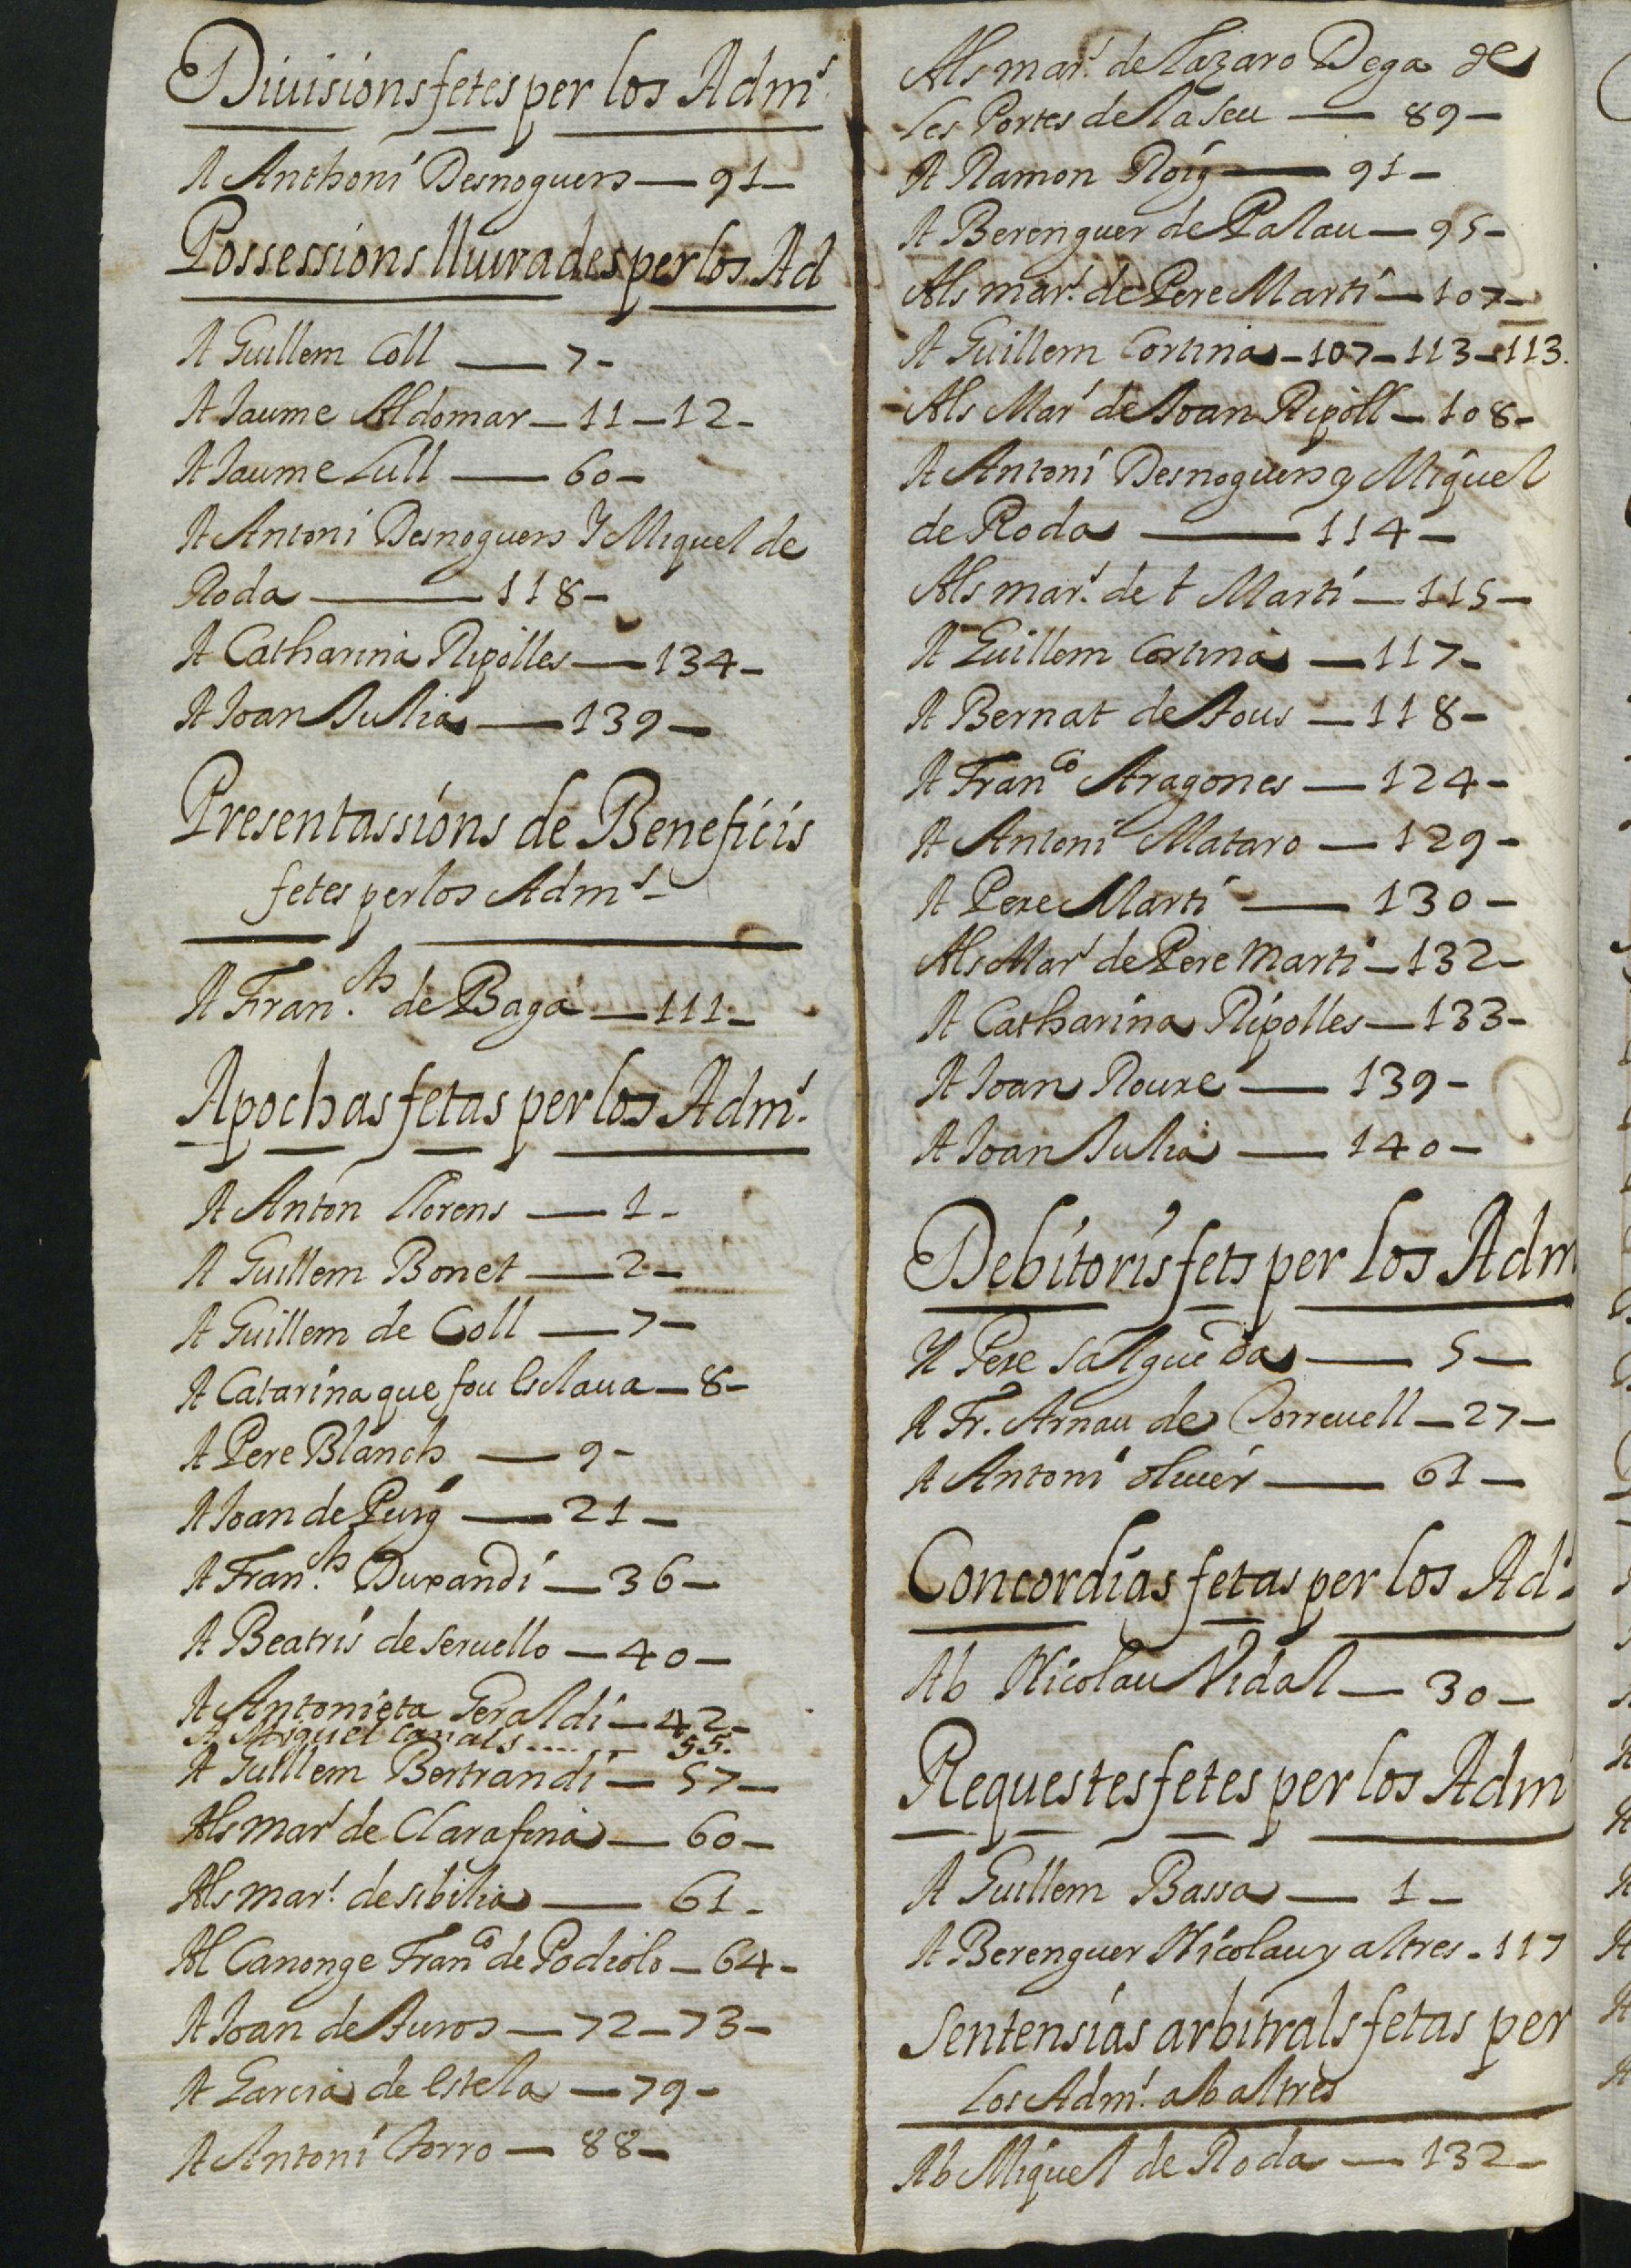 Diuisions fetes per los Adm.s
A Anthoni Desnoguers — 91 —
Possessions lliurades per los Ad
A Guillem Coll — 7 -
A Jaume Aldomar — 11 — 12 -
A Jaume Lull — 60 —
A Antoni Desnoguers Y Miquel de
Roda — 118 —
A Catharina Ripolles — 134 —
A Joan Julia — 139 —
Presentassions de Beneficis
fetes per los Adm.s —
A Fran.ch de Baga — 111 —
Apochas fetas per los Adm.s
A Anton Llorens — 1 -
A Guillem Bonet — 2 —
A Guillem de Coll — 7 —
A Catarina que fou Esclaua — 8 —
A Pere Blanch — 9 -
A Joan de Puig — 21 —
A Fran.ch Durandi — 36 —
A Beatris de seruello — 40 —
A Antonieta Geraldi — 42 —
A Miquel Canals .... — 55.
A Guillem Bertrandi — 57 —
Als mar.s de Clarafina — 60 —
Als mar.s de sibilia — 61 -
Al Canonge Fran.co de Podiolo — 64 -
A Joan de Turos — 72 — 73 —
A Garcia de Estela — 79 —
A Antoni Torro — 88 —
Als mar.s de Lazaro Dega de
les Portes de la seu — 89 —
A Ramon Roig — 91 —
A Berenguer de Palau — 95 —
Als mar.s de Pere Marti — 107 —
A Guillem Cortina — 107 — 113 — 113.
Als Mar.s de Joan Ripoll — 108 -
A Antoni Desnoguers y Miquel
de Roda — 114 —
Als mar.s de t Marti — 115 —
A Guillem Cortina — 117 —
A Bernat de Tous — 118 —
A Fran.co Aragones — 124 —
A Antoni Mataro — 129 —
A Pere Marti — 130 —
Als Mar.s de Pere Marti — 132 —
A Catharina Ripolles — 133 —
A Joan Roure — 139 -
A Joan Julia — 140 —
Debitoris fets per los Adm
A Pere salgueda — 5 —
A Fr. Arnau de Correuell — 27 —
A Antoni oliuer — 61 —
Concordias fetas per los Ad.s
Ab Nicolau Vidal — 30 —
Requestes fetes per los Adm
A Guillem Bassa — 1 —
A Berenguer Nicolau y altres - 117
Sentensias arbitrals fetas per
los Adm.s ab altres
Ab Miquel de Roda — 132 —